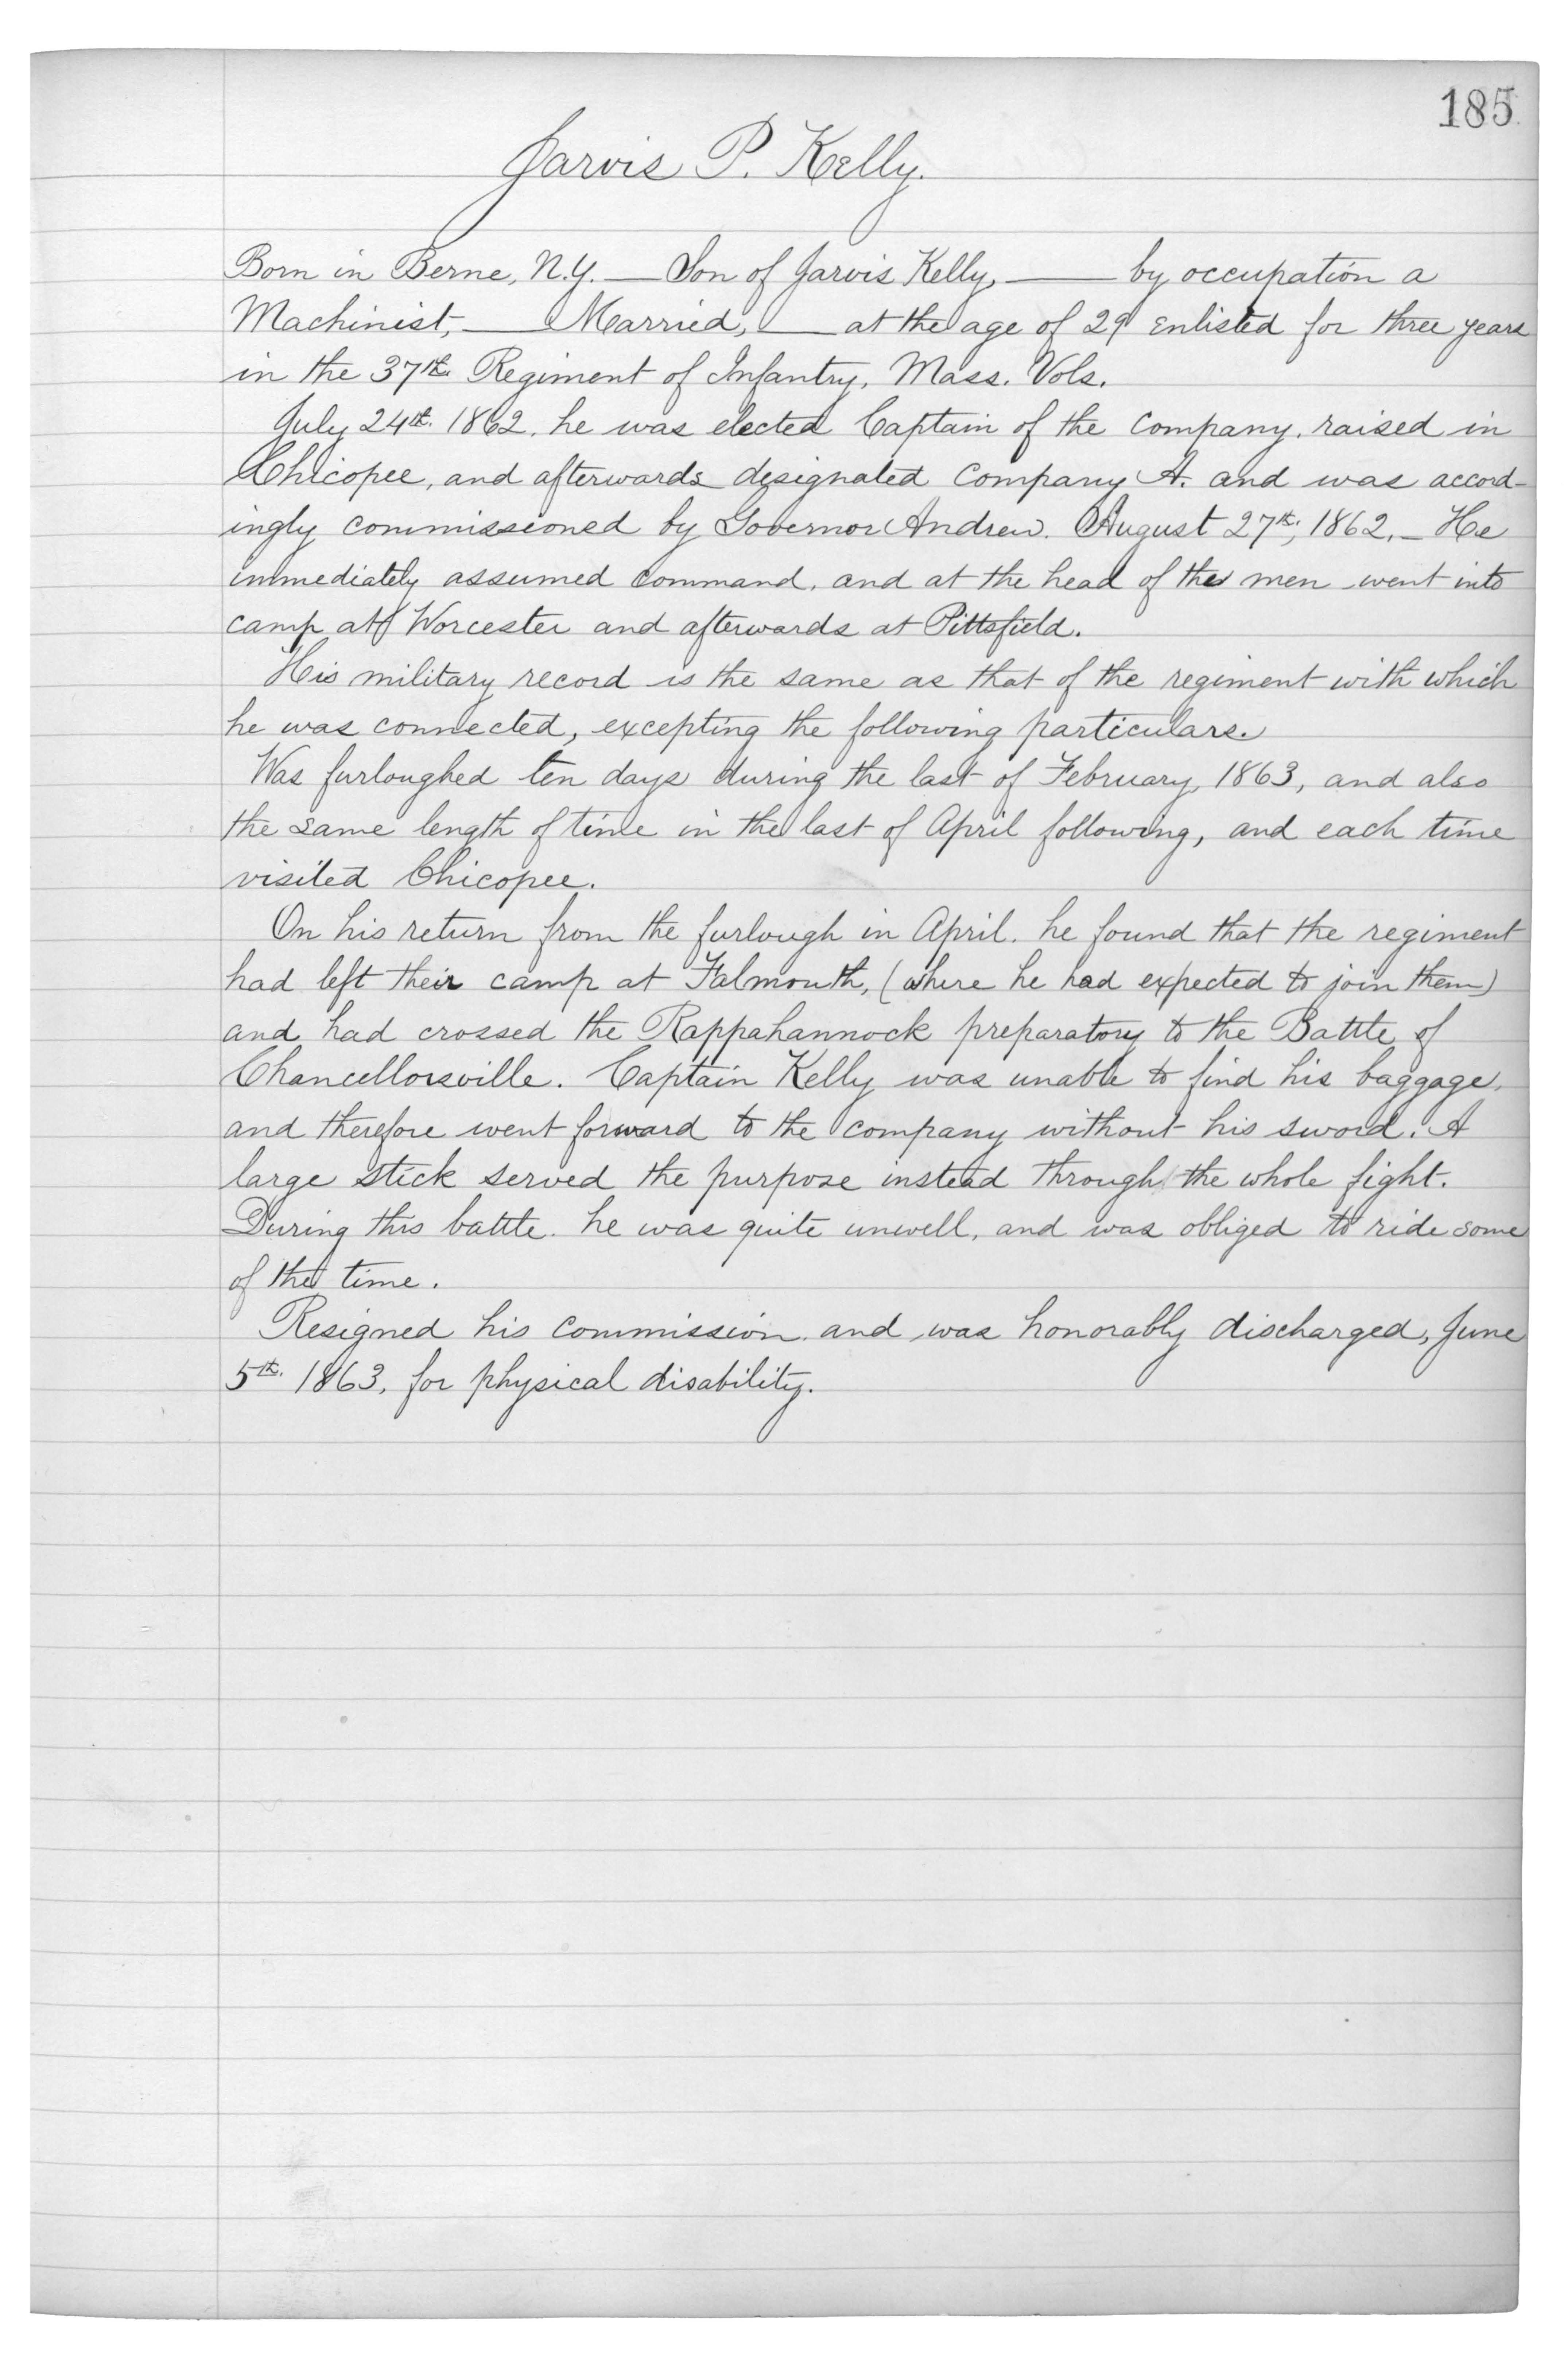 185
Jarvis P. Kelly.
Born in Berne, N.Y. — Son of Jarvis Kelly, — by occupation a
Machinist, — Married, — at the age of 29 enlisted for three years
in the 37th Regiment of Infantry, Mass. Vols.
July 24th. 1862. he was elected Captain of the Company. raised in
Chicopee, and afterwards designated Company A. and was accord-
ingly commissioned by Governor Andrew. August 27th, 1862. – He
immediately assumed command. and at the head of the men went into
camp at Worcester and afterwards at Pittsfield.
His military record is the same as that of the regiment with which
he was connected, excepting the following particulars.
Was furloughed ten days during the last of February, 1863, and also
the same length of time in the last of April following, and each time
visited Chicopee.
On his return from the furlough in April. he found that the regiment
had left their camp at Falmouth, (where he had expected to join them)
and had crossed the Rappahannock preparatory to the Battle of
Chancellorsville. Captain Kelly was unable to find his baggage,
and therefore went forward to the company without his sword. A
large stick served the purpose instead through the whole fight.
During this battle. he was quite unwell, and was obliged to ride some
of the time.
Resigned his commission. and was honorably discharged, June
5th. 1863, for physical disability.